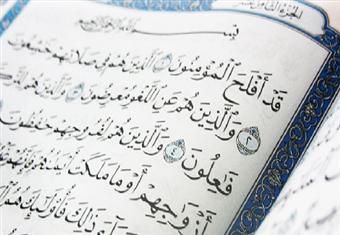 الجزء الثامن عشر
بسم الله الرحمن الرحيم
قَدْ أَفْلَحَ الْمُؤْمِنُونَ ١ الَّذِينَ هُمْ فِي صَلَاتِهِمْ خَاشِعُونَ
٢ وَالَّذِينَ هُمْ عَنِ اللَّغْوِ مُعْرِضُونَ ٣ وَالَّذِينَ هُمْ لِلزَّكَاةِ
فَاعِلُونَ ٤ وَالَّذِينَ هُمْ لِفُرُوجِهِمْ حَافِظُونَ
أَزْوَاجِهِمْ أَوْ مَا مَلَكَتْ أَيْمَانُهُمْ
ذَلِكَ فَأُولَئِكَ هُمُ